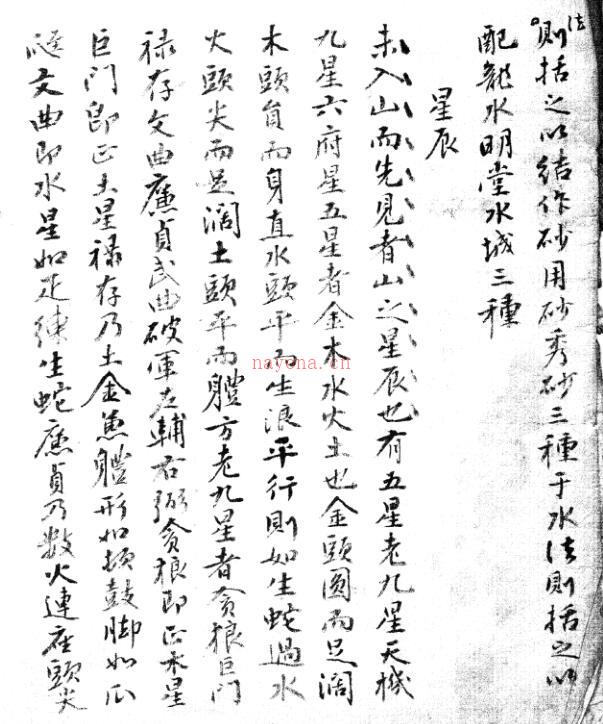 法則括之以結作砂用砂秀砂三種于水法則括之以
配龍水明堂水城三種
星辰
未入山而先見者山之星辰也有五星老九星天機
九星六府星五星者金木水火土也金頭圓而足濶
木頭員而身直水頭平而生浪平行則如生蛇過水
火頭尖而足濶土頭平而體方老九星者貪狼巨門
祿存文曲廉貞武曲破軍左輔右弼貪狼即正木星
巨門即正土星祿存乃土金兼體形如頓鼓脚如瓜
文曲即水星如疋練生蛇廉貞乃數火連座頭尖
nayona.cn